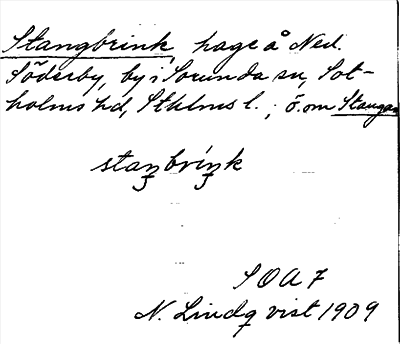 Stangbrink, hage å Ned.
Söderby, by i Sorunda sn, Sot-
holms hd, Sthlms l.; ö. om Stangan
staŋbríŋk
SOA 7
N. Lindqvist 1909